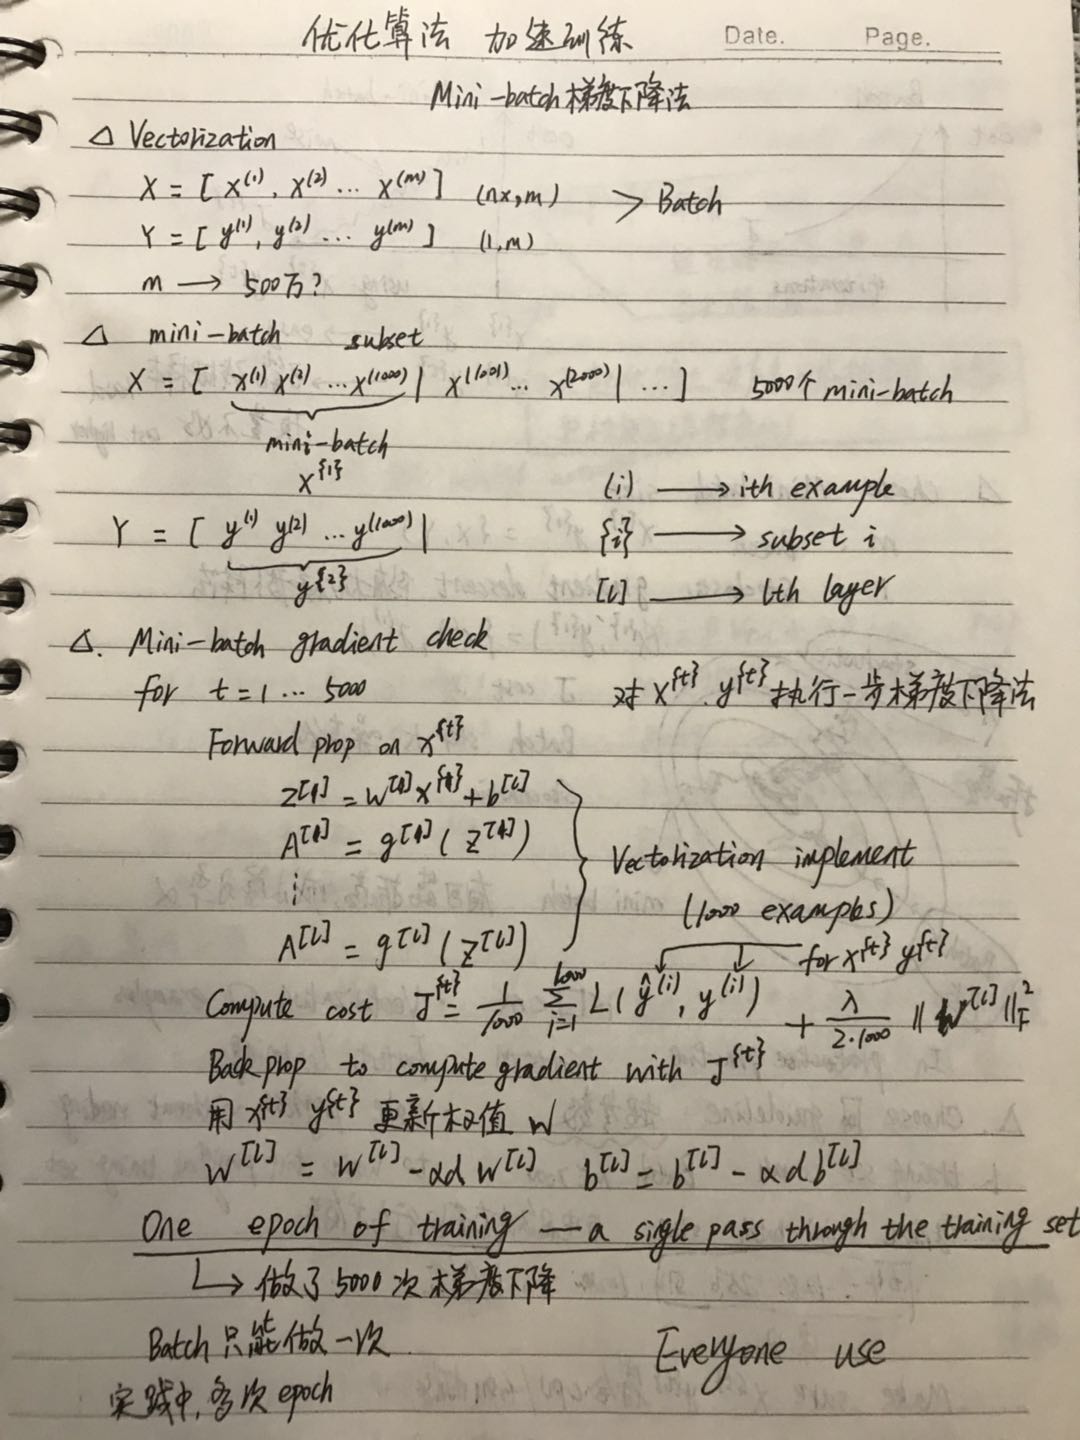 优化算法 加速训练 Date. Page.
Mini-batch梯度下降法
△ Vectorization
X = [ x^(1), x^(2) ... x^(m) ] (nx,m) > Batch
Y = [ y^(1), y^(2) ... y^(m) ] (1,m)
m → 500万?
△ mini-batch subset
X = [ x^(1) x^(2) ... x^(1000) | x^(1001) ... x^(2000) | ... ] 5000个 mini-batch
mini-batch
x^{1}
(i) → ith example
Y = [ y^(1) y^(2) ... y^(1000) | {i} → subset i
y^{2}
[l] → lth layer
△. Mini-batch gradient check
for t=1 ... 5000 对 x^{t}. y^{t} 执行一步梯度下降法
Forward prop on x^{t}
z^[1] = w^[1] x^{t} + b^[l]
A^[1] = g^[1] ( z^[1] )
⋮
Vectorization implement
(1000 examples)
A^[l] = g^[l] ( z^[l] )
for x^{t} y^{t}
Compute cost J^{t} = 1/1000 Σ_{i=1}^{1000} L( ŷ^(i), y^(i) ) + λ/2·1000 ‖ w^[l] ‖_F^2
Back prop to compute gradient with J^{t}
用 x^{t} y^{t} 更新权值 W
w^[l] = w^[l] - αd w^[l] b^[l] = b^[l] - αd b^[l]
One epoch of training — a single pass through the training set
↳ 做了 5000 次梯度下降
Batch 只能做一次
Everyone use
实践中, 多次 epoch